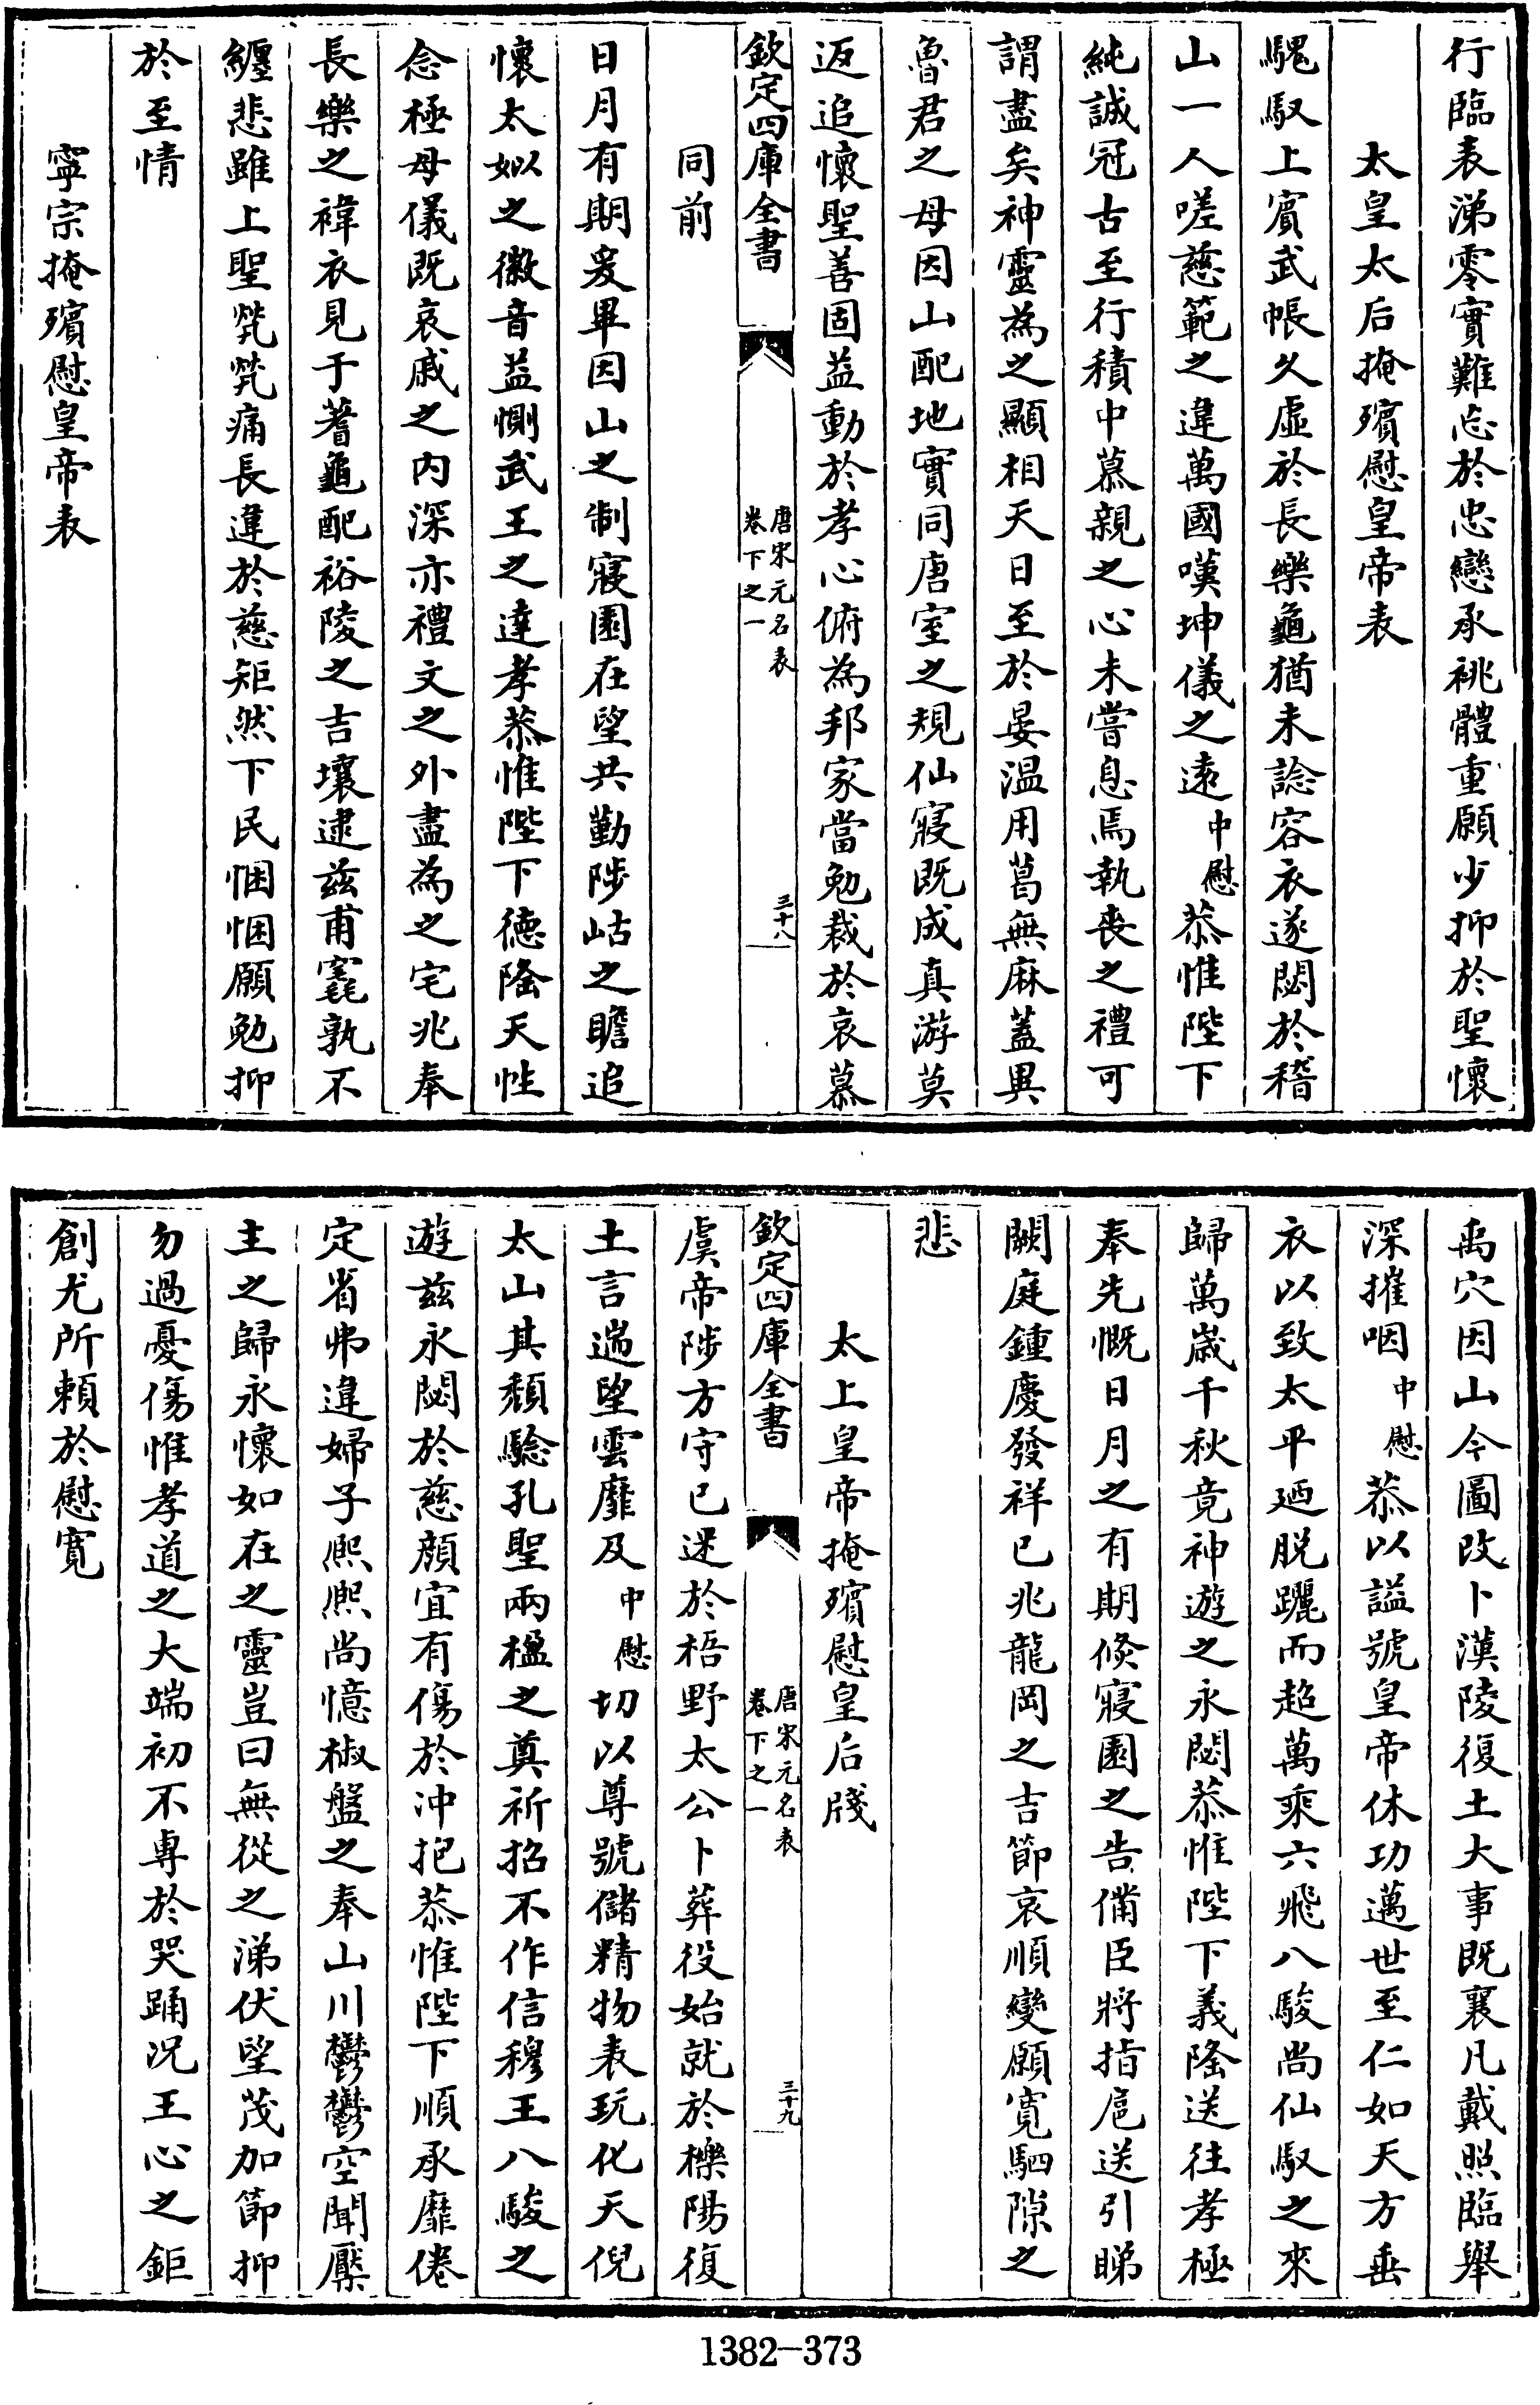 行臨表涕零實難忘於忠戀承祧體重願少抑於聖懷
太皇太后掩殯慰皇帝表
騩馭上賓武帳久虛於長樂龜猶未諗容衣遂閟於稽
山一人嗟慈範之違萬國嘆坤儀之遠中慰恭惟陛下
純誠冠古至行積中慕親之心未嘗息焉執喪之禮可
謂盡矣神靈為之顯相天日至於晏温用葛無麻蓋異
魯君之母因山配地實同唐室之規仙寢既成真游莫
返追懷聖善固益動於孝心俯為邦家當勉裁於哀慕
欽定四庫全書
唐宋元名表
卷下之一
三十八
同前
日月有期爰畢因山之制寢園在望共勤陟岵之瞻追
懷太姒之徽音益惻武王之達孝恭惟陛下德隆天性
念極母儀既哀戚之內深亦禮文之外盡為之宅兆奉
長樂之褘衣見于蓍龜配裕陵之吉壤逮兹甫竁孰不
纏悲雖上聖煢煢痛長違於慈矩然下民悃悃願勉抑
於至情
寧宗掩殯慰皇帝表
禹穴因山今圖改卜漢陵復土大事既襄凡戴照臨舉
深摧咽中慰恭以謚號皇帝休功邁世至仁如天方垂
衣以致太平廼脱躧而超萬乘六飛八駿尚仙馭之來
歸萬歲千秋竟神遊之永閟恭惟陛下義隆送往孝極
奉先慨日月之有期倏寢園之告備臣將指扈送引睇
闕庭鍾慶發祥已兆龍岡之吉節哀順變願寬駟隙之
悲
太上皇帝掩殯慰皇后牋
欽定四庫全書
唐宋元名表
卷下之一
三十九
虞帝陟方守已迷於梧野太公卜葬役始就於櫟陽復
土言遄望雲靡及中慰切以尊號儲精物表玩化天倪
太山其頽驗孔聖兩楹之奠祈招不作信穆王八駿之
遊兹永閟於慈顔宜有傷於冲抱恭惟陛下順承靡倦
定省弗違婦子熙熙尚憶椒盤之奉山川鬱鬱空聞檿
主之歸永懷如在之靈豈曰無從之涕伏望茂加節抑
勿過憂傷惟孝道之大端初不專於哭踊况王心之鉅
創尤所賴於慰寬
1382-373